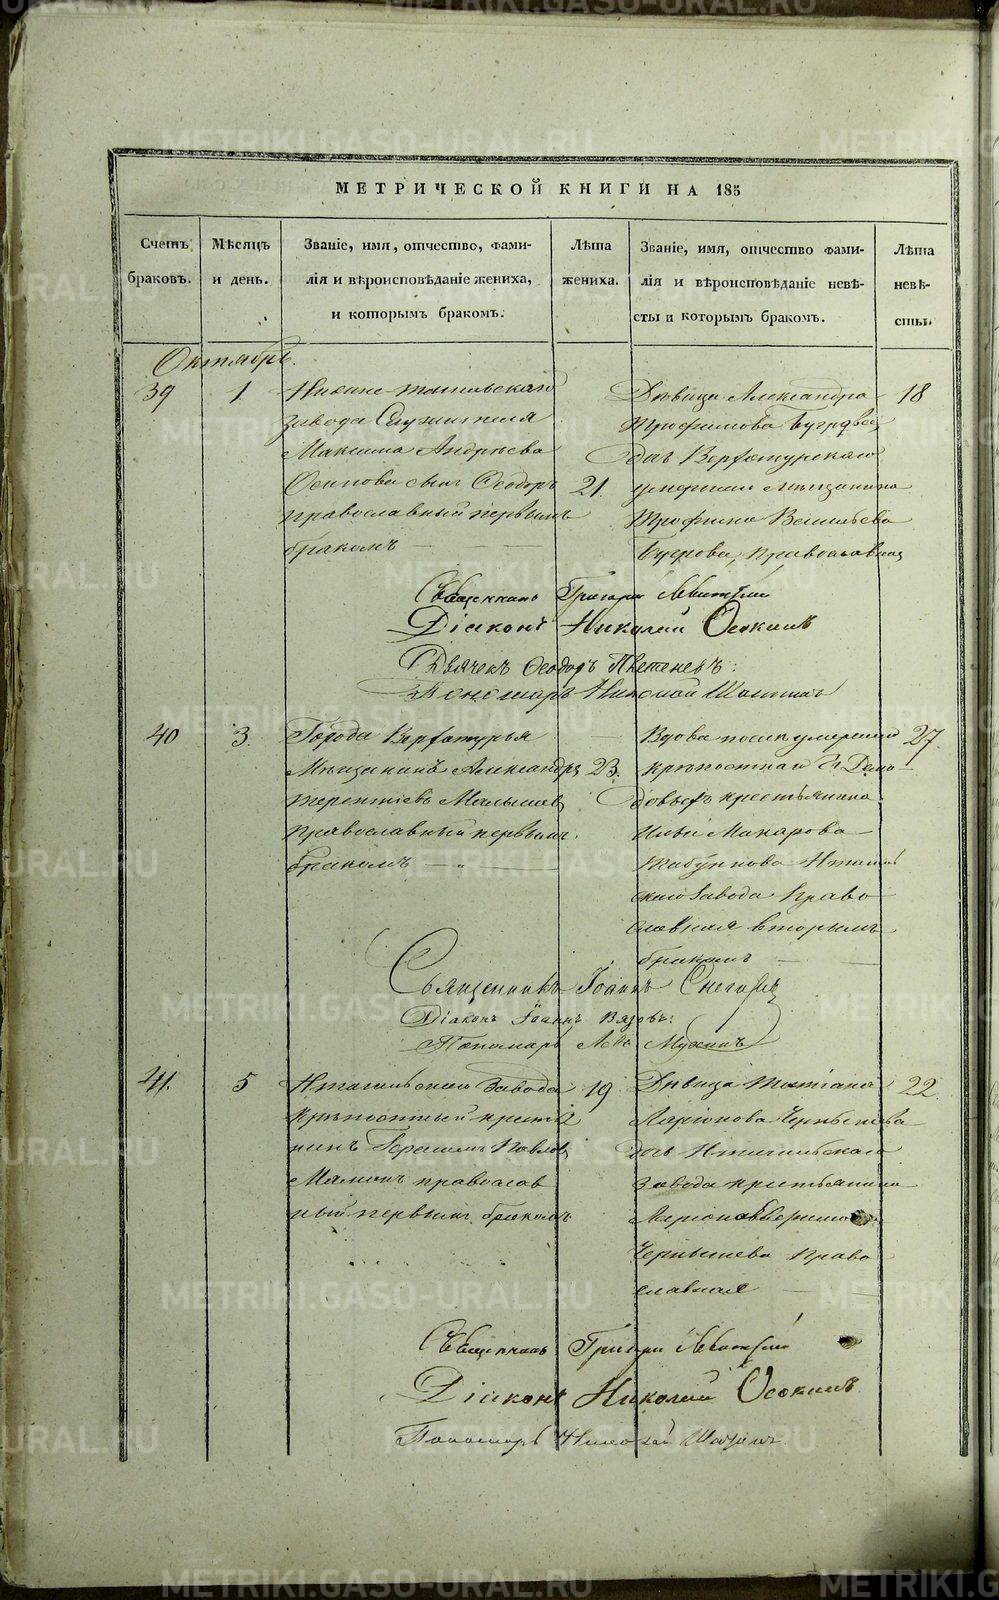 METRIKI.GASO-URAL.RU
МЕТРИЧЕСКОЙ КНИГИ НА 185
Счетъ браковъ.
Мѣсяцъ и день.
Званіе, имя, отчество, фами-
лія и вѣроисповѣданіе жениха,
и которымъ бракомъ.
Лѣта жениха.
Званіе, имя, отчество фами-
лія и вѣроисповѣданіе невѣ-
сты и которымъ бракомъ.
Лѣта невѣ-
сты.
Октябрь.
39
1.
Нижне тагильскаго
завода Служителя
Максима Андрѣева
Осипова сынъ Ѳеодоръ
православный первымъ
бракомъ
21.
Дѣвица Александра
Трофимова
дочь Верхотурскаго
умершаго мѣщанина
Трофима
православная
18
Священникъ Григорій Левитскій
Діаконъ Николай Осокинъ
Дьячекъ Ѳеодоръ
Пономарь Николай
40
3.
Города Верхотурья
Мѣщанинъ Александръ
Терентіевъ Малышевъ
православный первымъ
бракомъ
23.
Вдова послѣ умершаго
крѣпостнаго Гг Деми-
довыхъ крестьянина
Ильи Макарова
Нтагиль
скаго завода Право
славная вторымъ
бракомъ
27.
Священникъ Іоаннъ Снегиревъ
Діаконъ Іоаннъ Вязовъ.
Пономарь Левъ Мухинъ
41.
5
Нтагильскаго Завода
крѣпостный крестья
нинъ Герасимъ Павловъ
Мамонъ православ
ный первымъ бракомъ
19
Дѣвица Татіана
Ларіонова Чернышева
дочь Нтагильскаго
завода крестьянина
Ларіона
Чернышева Право
славная
22.
Священникъ Григорій Левитскій
Діаконъ Николай Осокинъ
Пономарь Николай